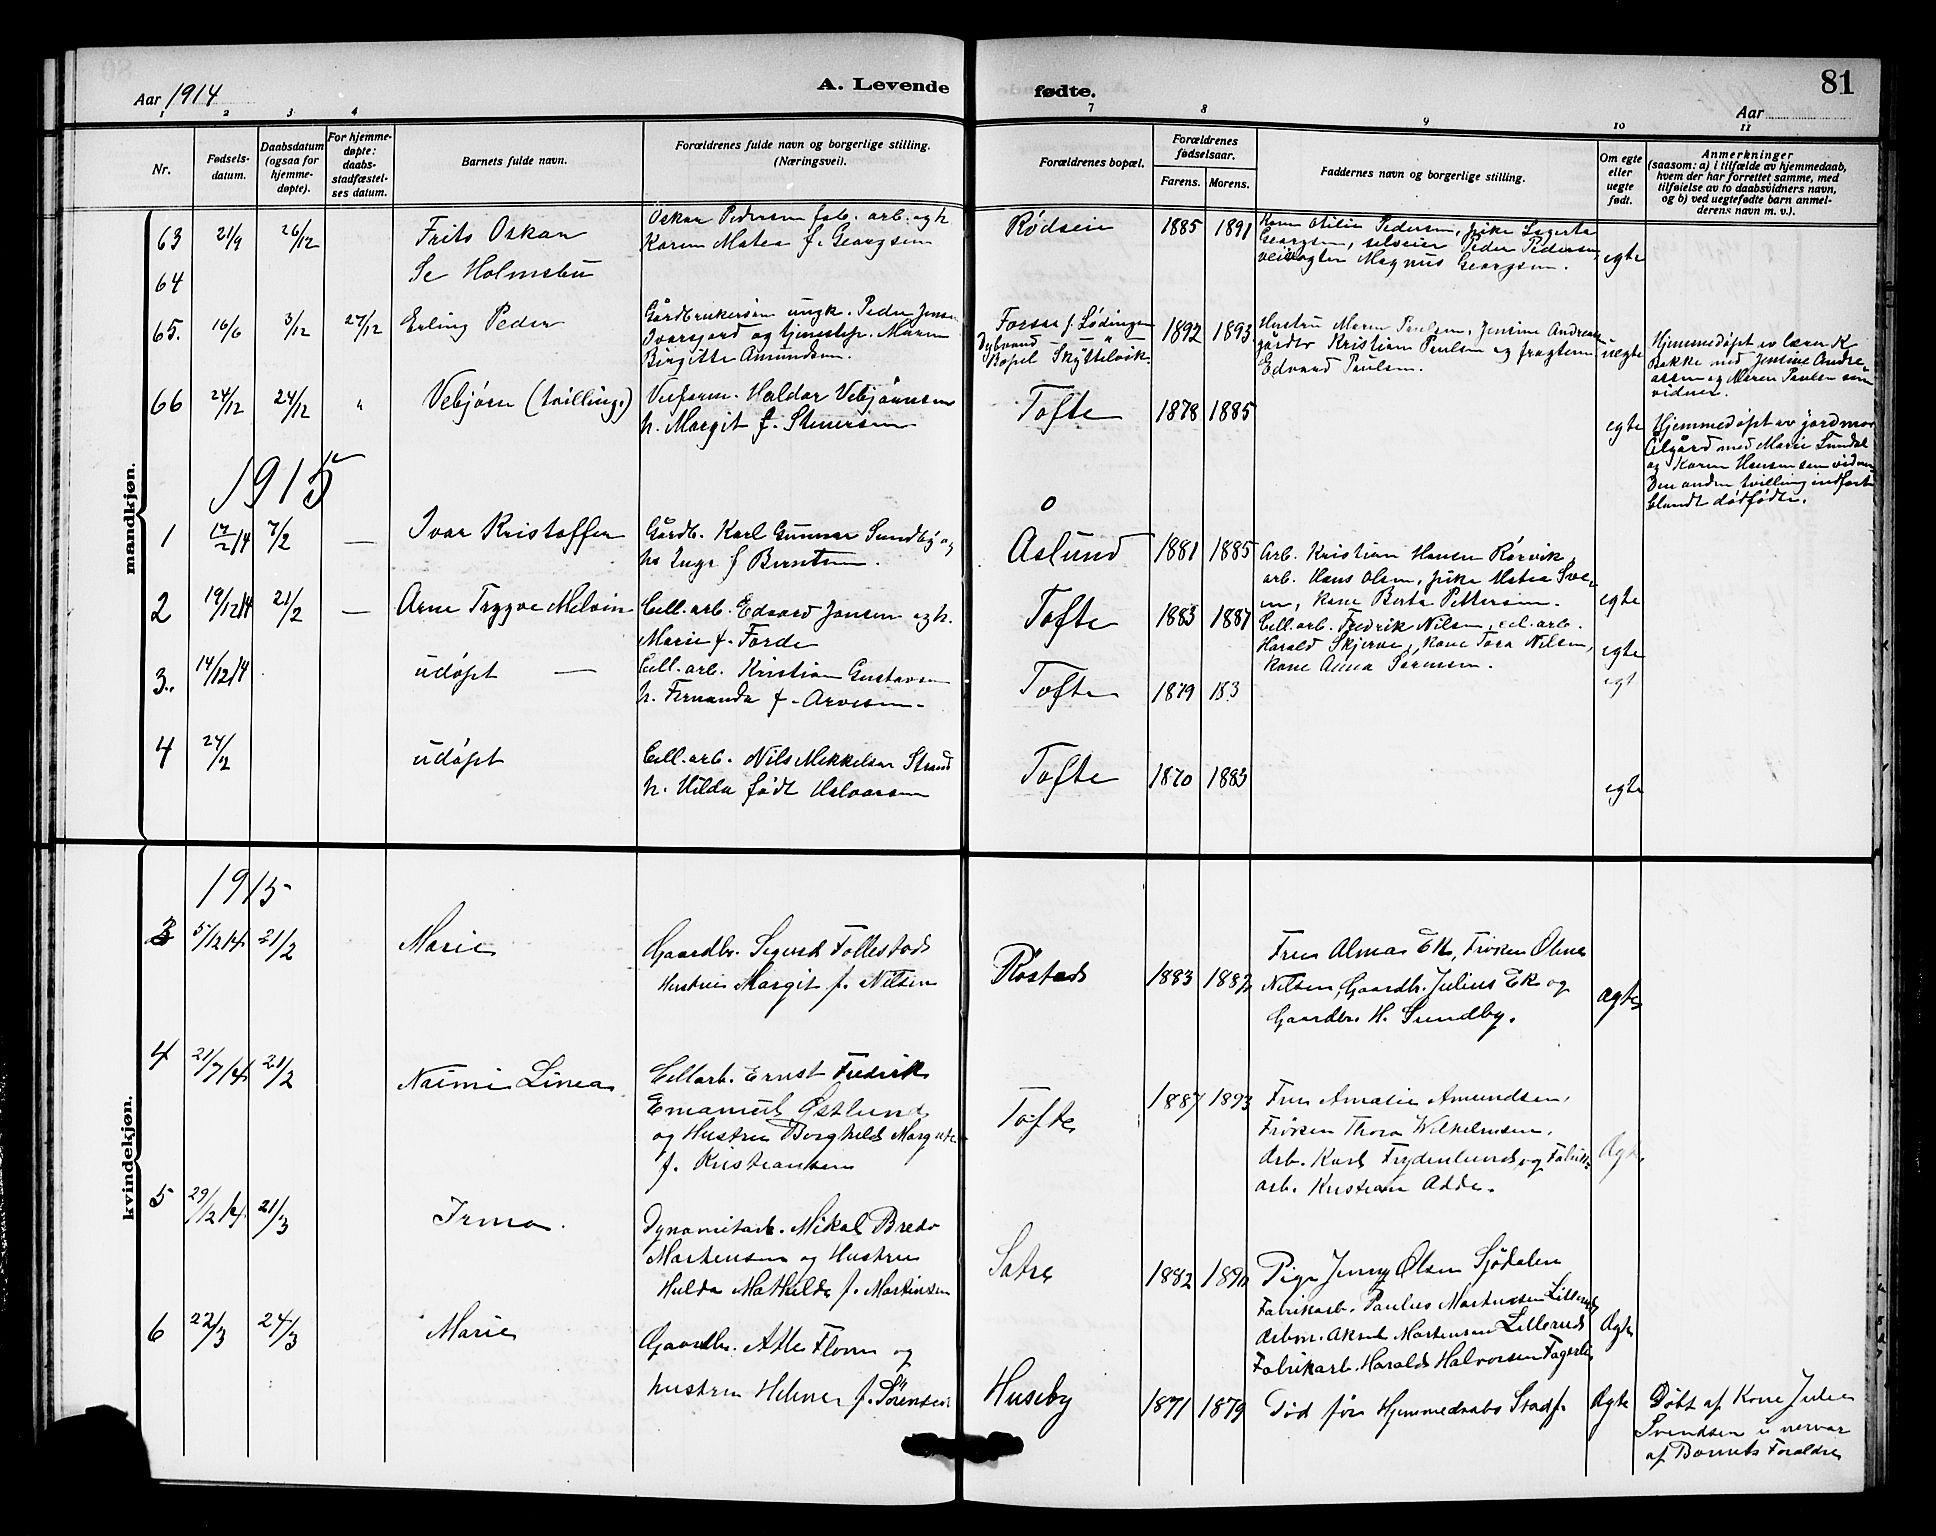 Aar 1914
A. Levende
fødte.
81
Aar
1 2 3 4 7 8 9 10 11
Nr.
Fødsels-
datum.
Daabsdatum
(ogsaa for
hjemme-
døpte).
For hjemme-
døpte:
daabs-
stadfæstel-
ses datum.
Barnets fulde navn.
Forældrenes fulde navn og borgerlige stilling.
(Næringsvei).
Forældrenes bopæl.
Forældrenes
fødselsaar.
Farens. Morens.
Faddernes navn og borgerlige stilling.
Om egte
eller
uegte
født.
Anmerkninger
(saasom: a) i tilfælde av hjemmedaab,
hvem der har forrettet samme, med
tilføielse av to daabsvidners navn,
og b) ved uegtefødte barn anmel-
derens navn m. v.).
mandkjøn.
63 21/9 26/12 Frits Oskar
Oskar Pedersen fab. arb. og h.
Karen Matea f. Georgsen
Rødsein 1885 1891
Kone Otilie Pedersen, pike
Georgsen, selveier Peder Pedersen,
Magnus Georgsen.
egte
64 Se Holmsbu
65. 16/6 3/12 27/12 Erling Peder
Gårdbrukersøn ungk. Peder Jensen
Ivarsjord og tjenestep. Maren
Birgitte Amundsen.
Forsaa f. Lødingen
Bopel Skyttelvik
1892 1893
Hustru Maren Paulsen, Jensine Andreassen
gårdbr Kristian Paulsen og
Edvard Paulsen.
uegte
Hjemmedøpt av lærer K.
Bakke med Jensine Andre-
assen og Maren Paulsen som
vidner.
66 24/12 24/12 " Vebjørn (tvilling.)
Haldor Vebjörnsen
h. Margit f. Stenersen
Tofte 1878 1885
egte
Hjemmedøpt av jordmor
Ålgård med Marie Sundal
og Karen Hansen som vidner
Den anden tvilling indført
blandt dødfødte.
1915
1 17/2 14 7/2 — Ivar Kristoffer
Gårdb. Karl Gunnar Sundby og
hs Inga f Berntsen.
Åslund 1881 1885
Arb. Kristian Hansen Rørvik,
arb. Hans Olsen, pike Matea Sve-
en, kone Berta Pettersen.
egte
2 19/12 14 21/2 — Arne Trygve Melvin
Cell. arb. Edvard Jensen og h.
Marie f. Forde
Tofte 1883 1887
Cell. arb. Fredrik Nilsen, cel. arb.
Harald Skjerve, kone Tora Nilsen,
kone Anna Sørensen.
egte
3. 14/12 14 udøpt —
Cell. arb. Kristian Gustavsen
h. Fernanda f. Arvesen.
Tofte 1879 183
egt
4 24/2 udøpt
Cell. arb. Nils Mikkelsen Strand
h. Hilda født Halvorsen
Tofte 1870 1883
egte
kvindekjøn.
1915
3 5/12 14 21/2 Marie
Gaardbr. Sigurd Follestad
Hustru Margit f. Nilsen
Røstad 1883 1882
Fru Alma Ek, Frøken Olena
Nilsen, Gaardbr. Julius Ek og
Gaardbr. H. Sundby.
Ægte
4 21/7 14 21/2 Naimi Linea
Cellarb. Ernst Fredrik
Emanuel Østlund
og Hustru Borghild Margrete
f. Kristiansen
Tofte 1887 1893
Fru Amalie Amundsen,
Frøken Thora Wilhelmsen,
Arb. Karl Frydenlund og Fabrik-
arb. Kristian Adde.
Ægte
5 29/12 14 21/3 Irma.
Dynamitarb. Mikal Bredo
Martensen og Hustru
Hulda Mathilde f. Martinsen
Sætre 1882 1890
Pige Jenny Olsen Sjødalen
Fabrikarb. Paulus Martensen Lillerud
Arbm. Aksel Martensen Lillerud
Fabrikarb. Harald Halvorsen Fagerli
Ægte
6 22/3 24/3 Marie
Gaardbr. Atle Flovm og
hustru Helene f. Sörensen
Huseby 1871 1879
Død før Hjemmedaabs Stadf.
Ægte
Døbt af Kone Julie
Svendsen i nervær
af Barnets Foraldre